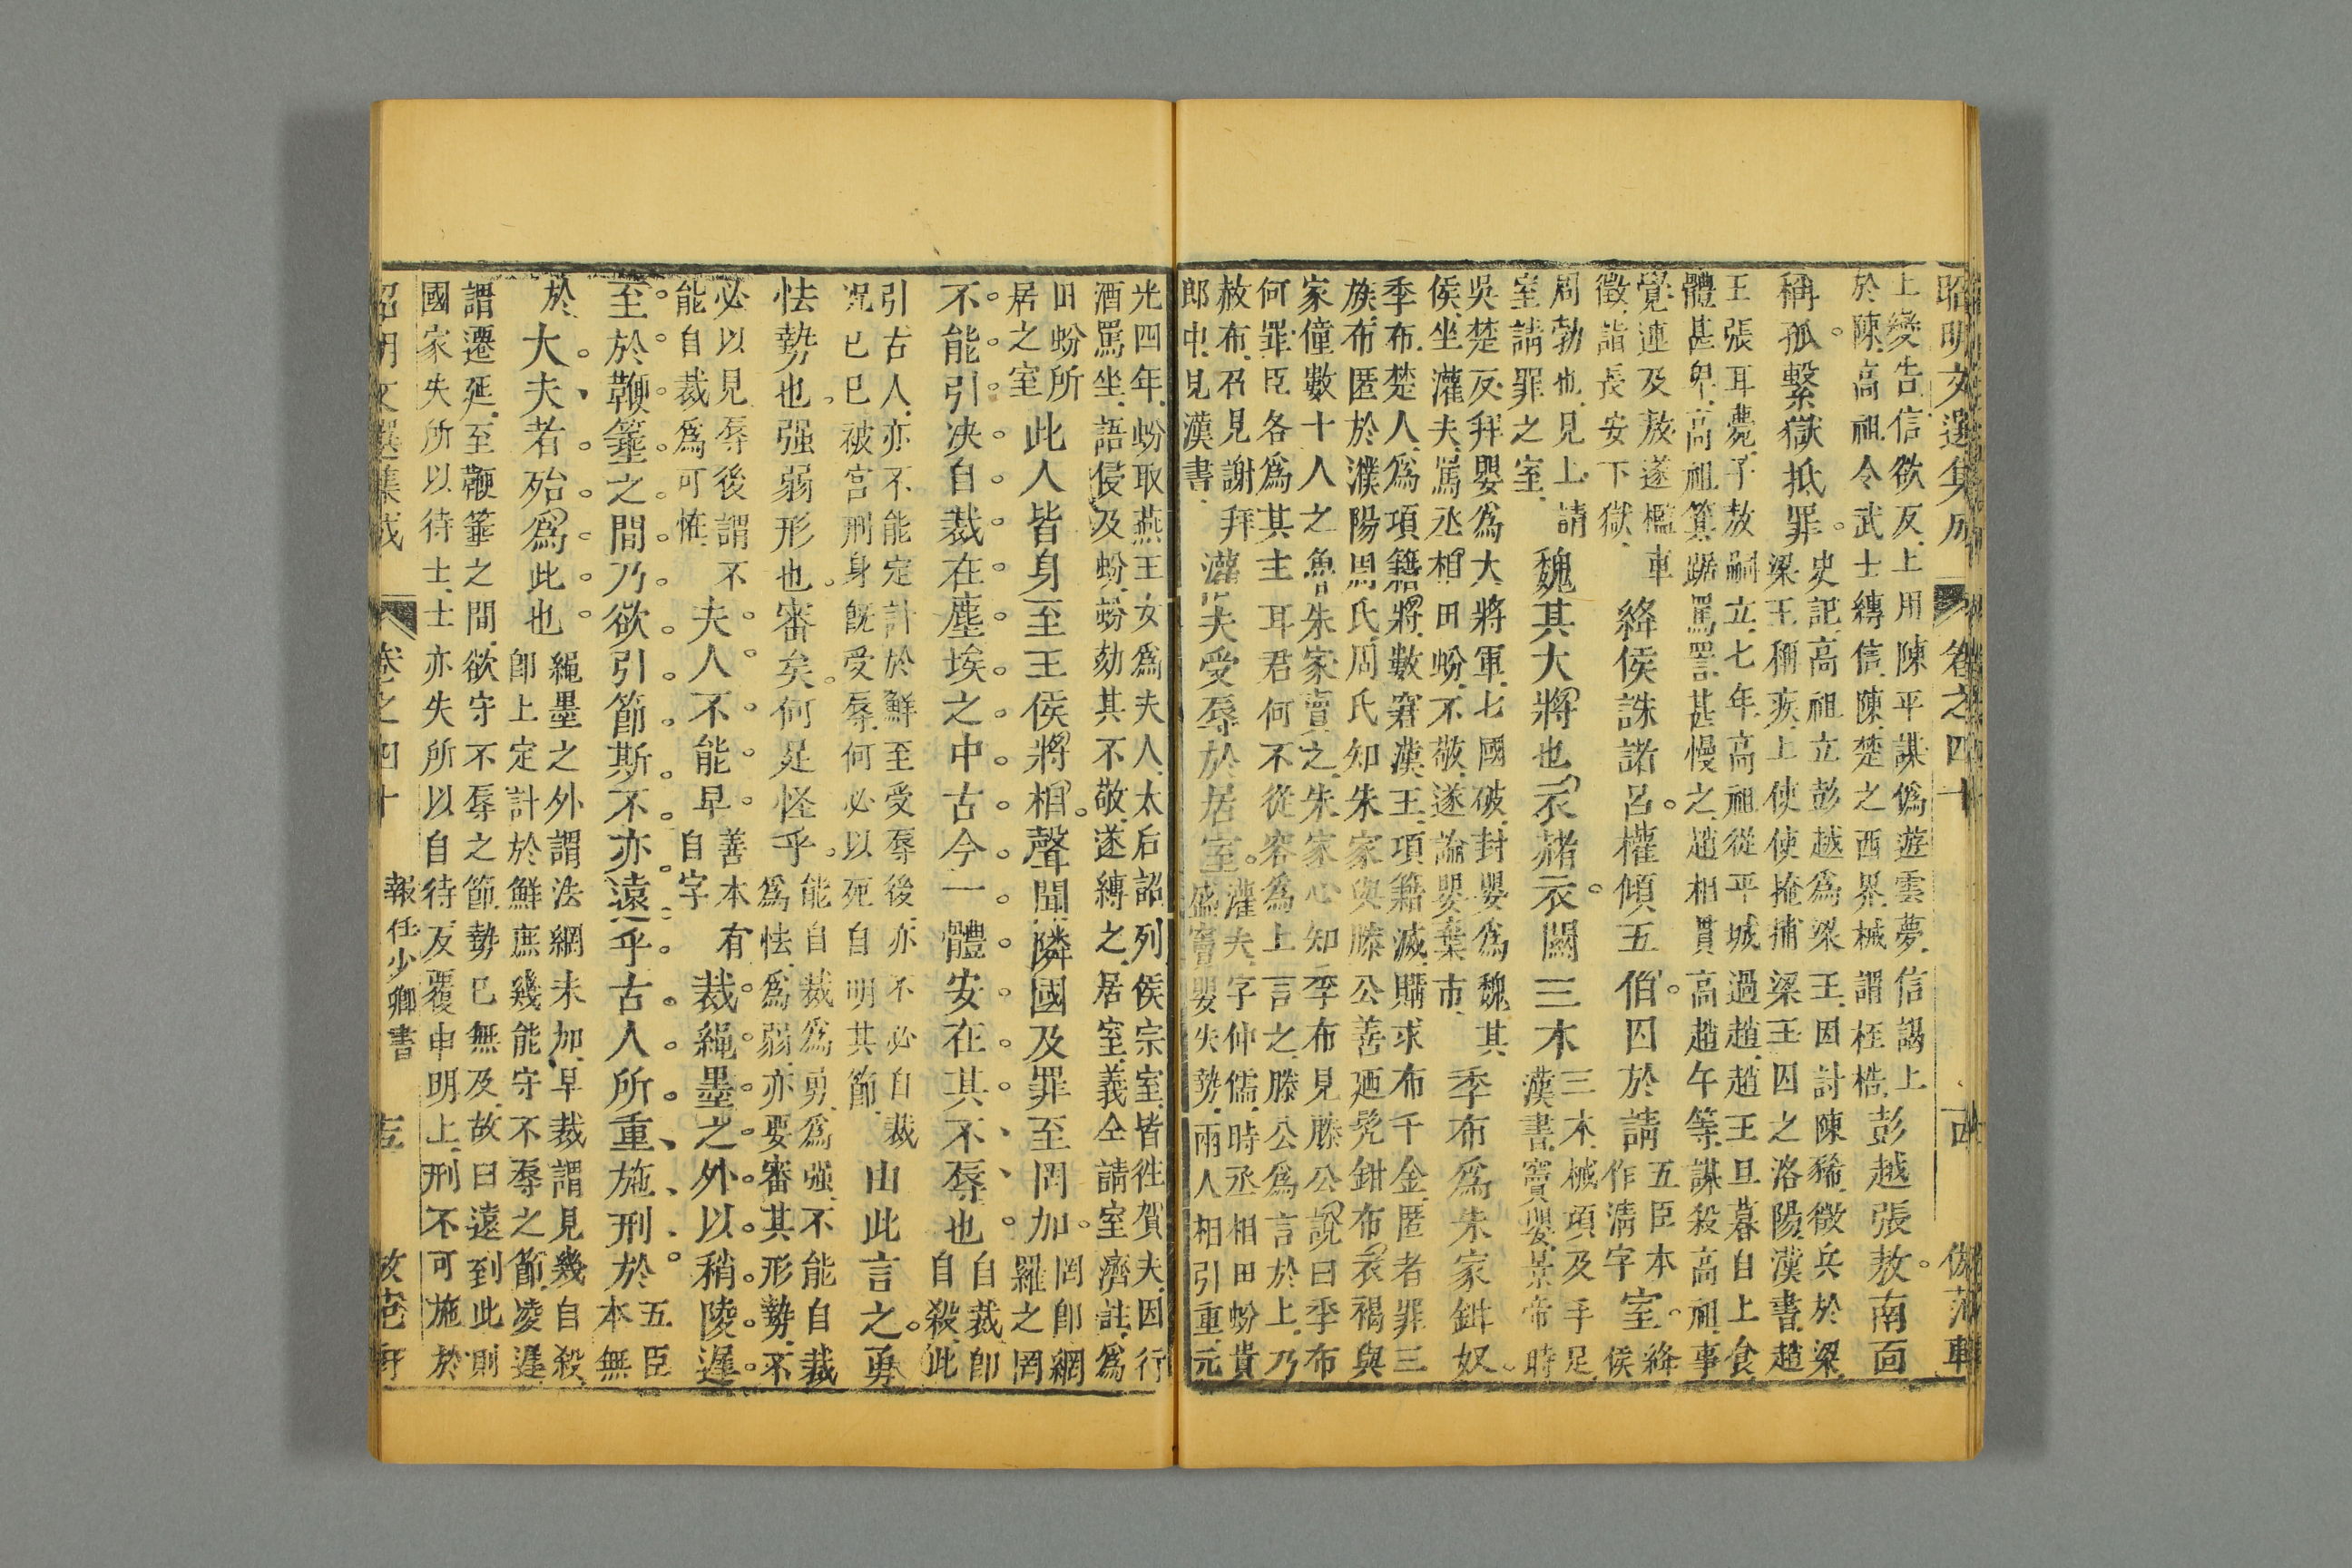 昭明文選集成 卷之四十
上變告信欲反上用陳平謀偽遊雲夢信謁上
於陳高祖令武士縛信陳楚之西界械謂桎梏 彭越張敖南面
稱孤繫獄抵罪 史記高祖立彭越爲梁王因討陳豨徵兵於梁
梁王稱疾上使使掩捕梁王囚之洛陽漢書趙
王張耳薨子敖嗣立七年高祖從平城過趙趙王旦暮自上食
體甚卑高祖箕踞罵詈甚慢之趙相貫高趙午等謀殺高祖事
覺連及敖遂檻車
徵詣長安下獄 絳侯誅諸呂權傾五伯囚於請 五臣本作清字 室 絳侯
周勃也見上請
室請罪之室 魏其大將也衣赭衣關三木 三木械項及手足
漢書竇嬰景帝時
吳楚反拜嬰爲大將軍七國破封嬰爲魏其
侯坐灌夫罵丞相田蚡不敬遂論嬰棄市 季布爲朱家鉗奴
季布楚人爲項籍將數窘漢王項籍滅購求布千金匿者罪三
族布匿於濮陽周氏周氏知朱家與滕公善廼髡鉗布衣褐與
家僮數十人之魯朱家賣之朱家心知季布見滕公說曰季布
何罪臣各爲其主耳君何不從容爲上言之滕公爲言於上乃
赦布召見謝拜
郎中見漢書 灌夫受辱於居室 灌夫字仲儒時丞相田蚡貴
盛竇嬰失勢兩人相引重元
光四年蚡取燕王女爲夫人太后詔列侯宗室皆往賀夫因行
酒罵坐語侵及蚡蚡劾其不敬遂縛之居室義仝請室濟註爲
田蚡所
居之室 此人皆身至王侯將相聲聞隣國及罪至罔加 罔卽網
羅之罔
不能引决自裁在塵埃之中古今一體安在其不辱也 自裁卽
自殺此
引古人亦不能定計於鮮至受辱後亦不必自裁
况已已被宮刑身旣受辱何必以死自明其節 由此言之勇
怯勢也强弱形也審矣何足怪乎 能自裁爲勇爲强不能自裁
爲怯爲弱亦要審其形勢不
必以見辱後謂不
能自裁爲可恠 夫人不能早 善本有
自字 裁繩墨之外以稍陵遲
至於鞭箠之間乃欲引節斯不亦遠乎古人所重施刑於 五臣
本無
於 大夫者殆爲此也 繩墨之外謂法網未加早裁謂見幾自殺
卽上定計於鮮庶幾能守不辱之節凌遲
謂遷延至鞭箠之間欲守不辱之節勢已無及故曰遠到此則
國家失所以待士士亦失所以自待反覆申明上刑不可施於
昭明文選集成 卷之四十 報任少卿書